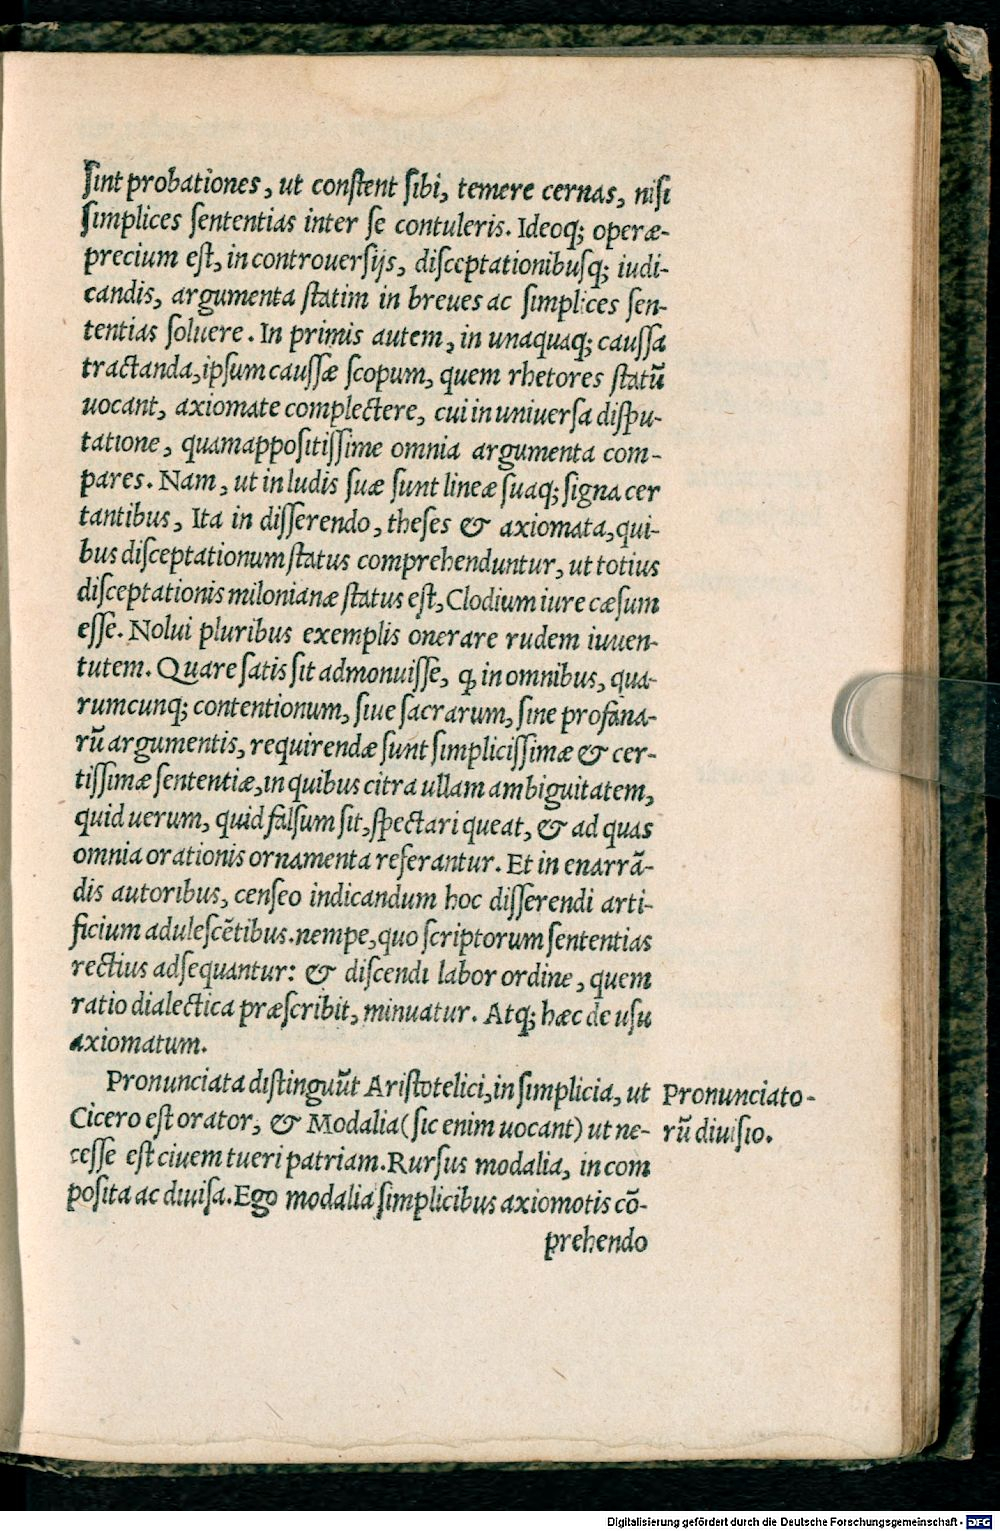 ſint probationes, ut conſtent ſibi, temere cernas, niſi
ſimplices ſententias inter ſe contuleris. Ideoq; operæ-
precium eſt, in controuerſijs, diſceptationibuſq; iudi-
candis, argumenta ſtatim in breues ac ſimplices ſen-
tentias ſoluere. In primis autem, in unaquaq; cauſſa
tractanda, ipſum cauſſæ ſcopum, quem rhetores ſtatū
uocant, axiomate complectere, cui in uniuerſa diſpu-
tatione, quamappoſitiſſime omnia argumenta com-
pares. Nam, ut in ludis ſuæ ſunt lineæ ſuaq; ſigna cer
tantibus, Ita in diſſerendo, theſes & axiomata, qui-
bus diſceptationum ſtatus comprehenduntur, ut totius
diſceptationis milonianæ ſtatus eſt, Clodium iure cæſum
eſſe. Nolui pluribus exemplis onerare rudem iuuen-
tutem. Quare ſatis ſit admonuiſſe, ꝙ in omnibus, qua-
rumcunq; contentionum, ſiue ſacrarum, ſine profana-
rū argumentis, requirendæ ſunt ſimpliciſſimæ & cer-
tiſſimæ ſententiæ, in quibus citra ullam ambiguitatem,
quid uerum, quid falſum ſit, ſpectari queat, & ad quas
omnia orationis ornamenta referantur. Et in enarrā-
dis autoribus, cenſeo indicandum hoc diſſerendi arti-
ficium aduleſcētibus. nempe, quo ſcriptorum ſententias
rectius adſequantur: & diſcendi labor ordine, quem
ratio dialectica præſcribit, minuatur. Atq; hæc de uſu
axiomatum.
Pronunciata diſtinguūt Ariſtotelici, in ſimplicia, ut
Cicero eſt orator, & Modalia (ſic enim uocant) ut ne-
ceſſe eſt ciuem tueri patriam. Rurſus modalia, in com
poſita ac diuiſa. Ego modalia ſimplicibus axiomotis cō-
prehendo
Pronunciato-
rū diuiſio.
Digitalisierung gefördert durch die Deutsche Forschungsgemeinschaft - DFG